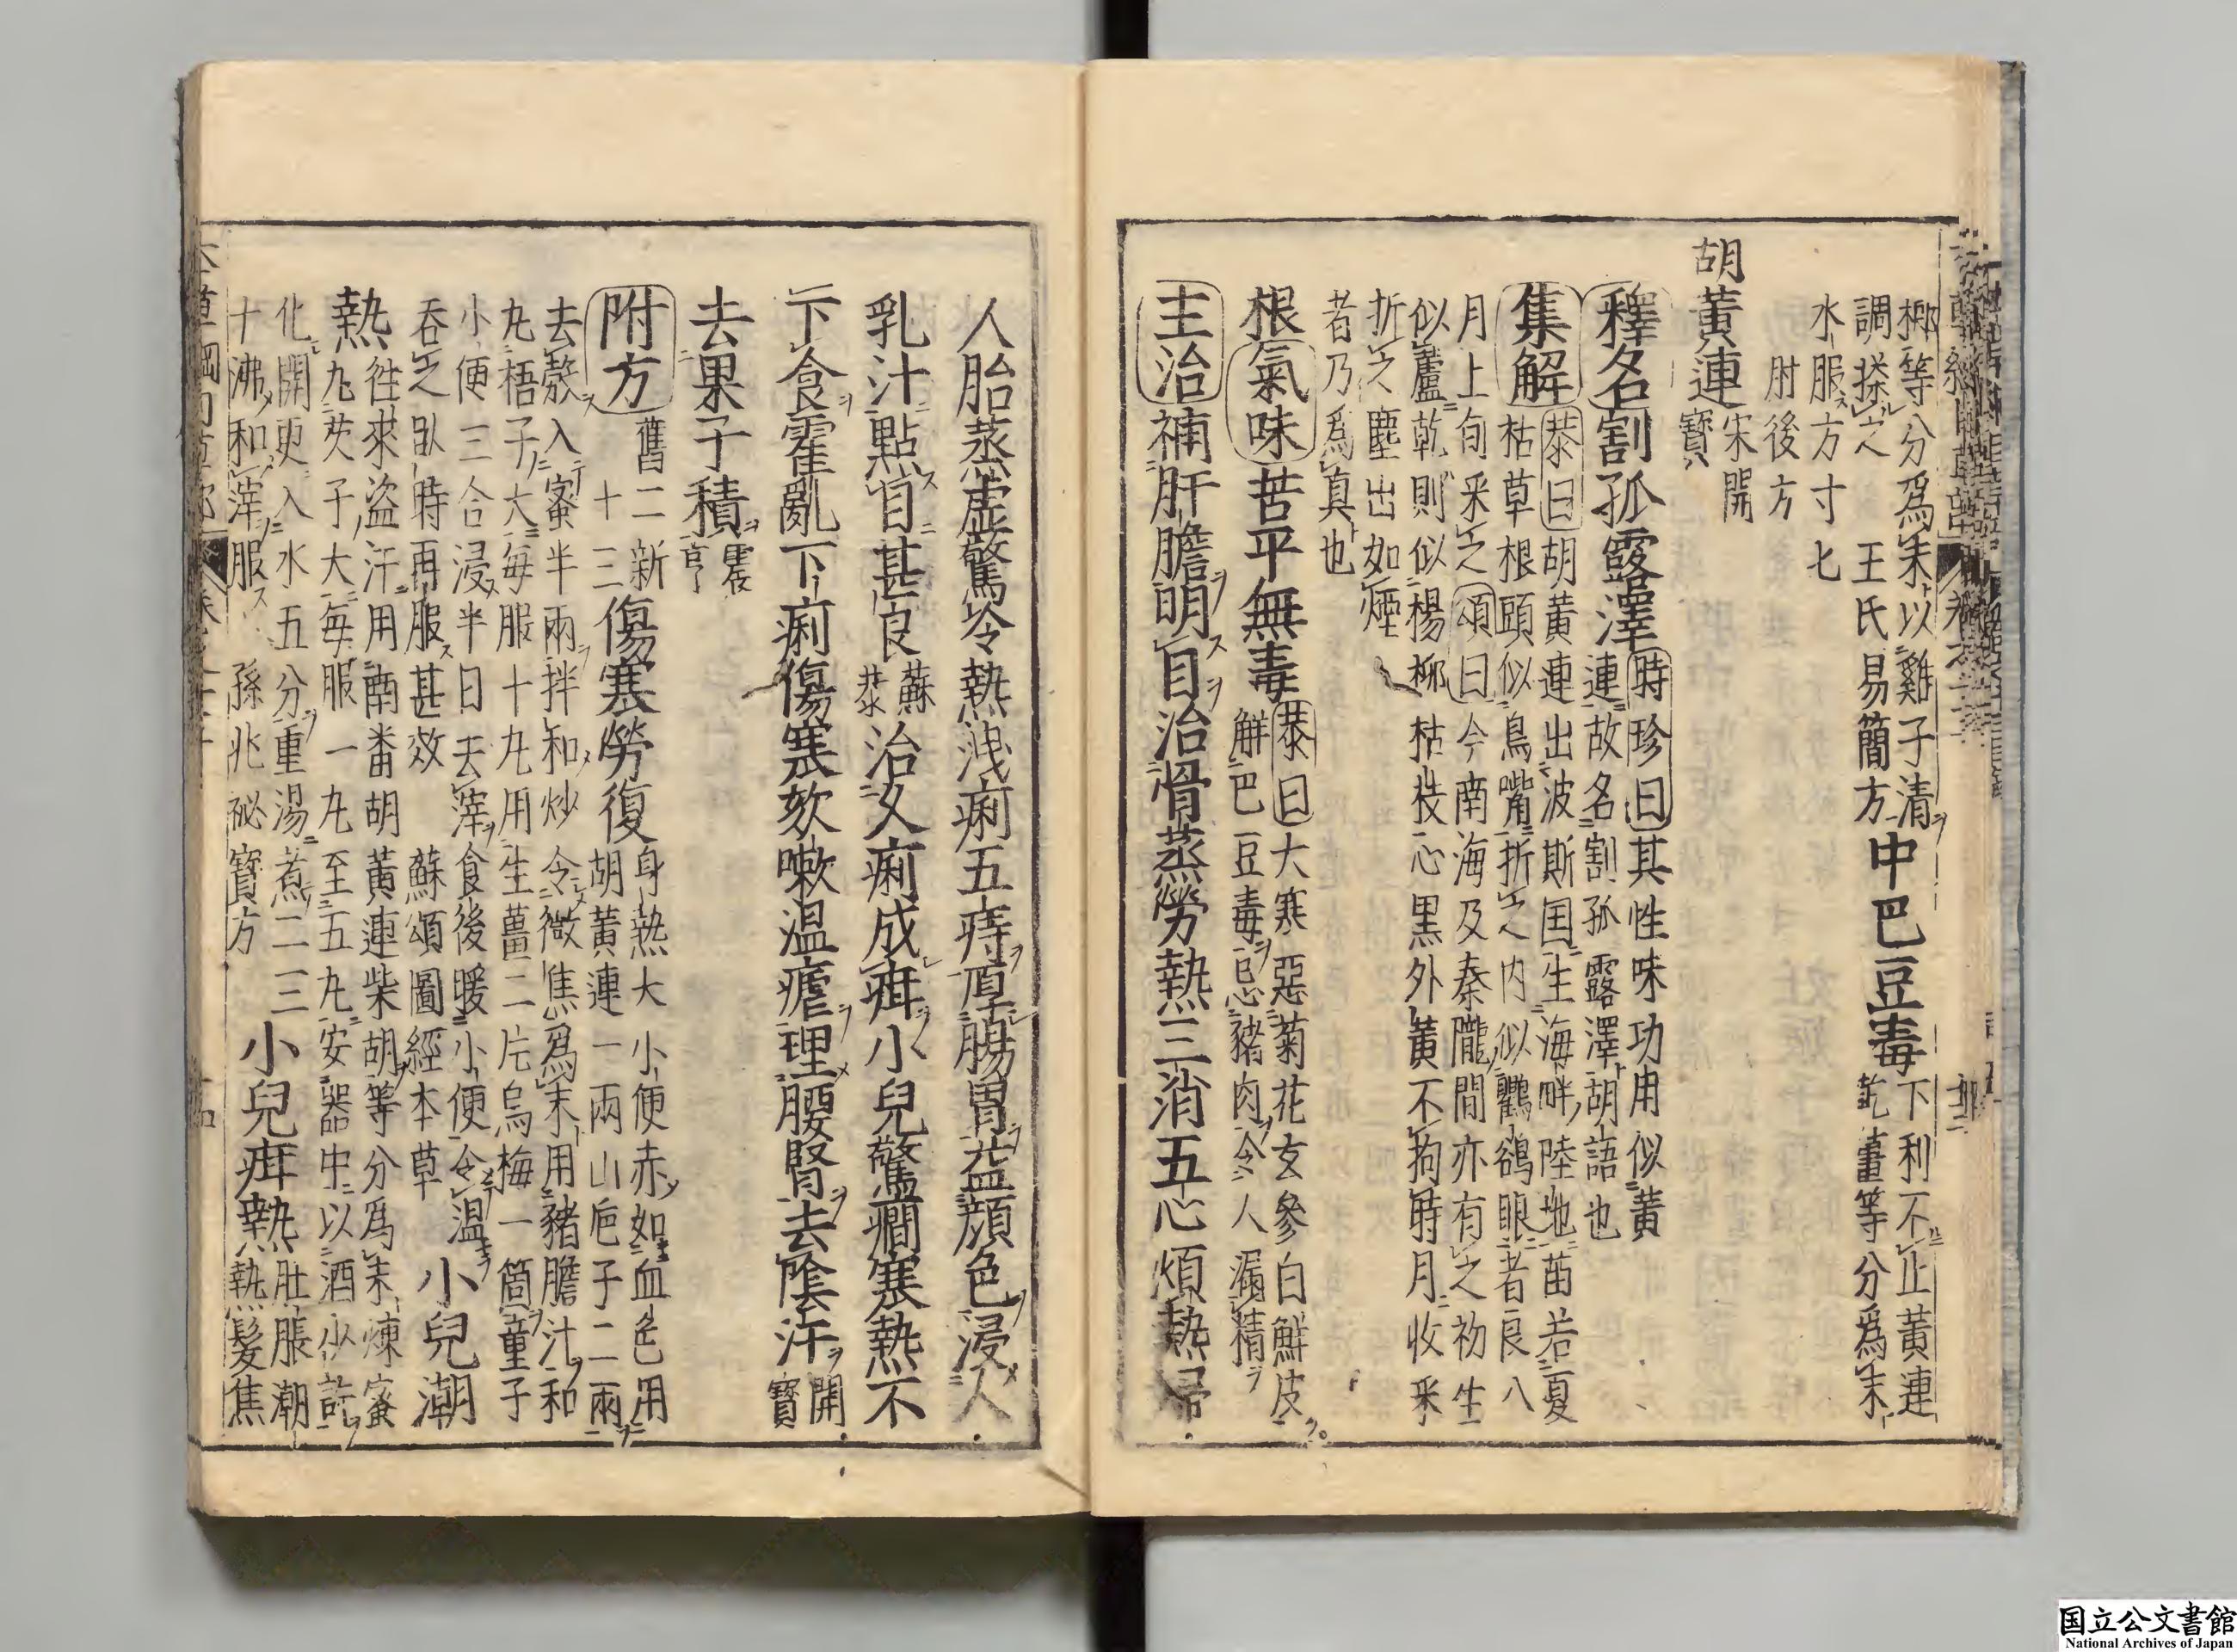 榔等分爲末以雞子清
調搽之　王氏易簡方
中巴豆毒
下利不止黃連
乾薑等分爲末
水服方寸匕
肘後方
胡黃連
宋開
寶
釋名割孤露澤
時珍曰其性味功用似黃
連故名割孤露澤胡語也
集解
恭曰胡黃連出波斯国生海畔陸地苗若夏
枯草根頭似鳥嘴折之内似鸜鵒眼者良八
月上旬采之頌曰今南海及秦隴間亦有之初生
似蘆乾則似楊柳枯枝心黑外黃不拘時月收采
折之塵出如煙
者乃爲真也
根氣味苦平無毒
恭曰大寒惡菊花玄參白鮮皮
解巴豆毒忌豬肉令人漏精
主治補肝膽明目治骨蒸勞熱三消五心煩熱婦
人胎蒸虛驚冷熱洩痢五痔厚腸胃益顔色浸人
乳汁點目甚良
蘇
恭
治久痢成疳小兒驚癇寒熱不
下食霍亂下痢傷寒欬嗽温瘧理腰腎去陰汗
開
寶
去果子積
震
亨
附方
舊二新
十三
傷寒勞復
身熱大小便赤如血色用
胡黃連一兩山巵子二兩
去殼入蜜半兩拌和炒令微焦爲末用豬膽汁和
丸梧子大每服十丸用生薑二片烏梅一箇童子
小便三合浸半日去滓食後暖小便令温
吞之臥時再服甚效　蘇頌圖經本草
小兒潮
熱
徃來盜汗用南番胡黃連柴胡等分爲末煉蜜
丸芡子大每服一丸至五丸安器中以酒少許
化開更入水五分重湯煮二三
十沸和滓服　孫兆祕寶方
小兒疳熱
肚脹潮
熱髮焦
国立公文書館
National Archives of Japan